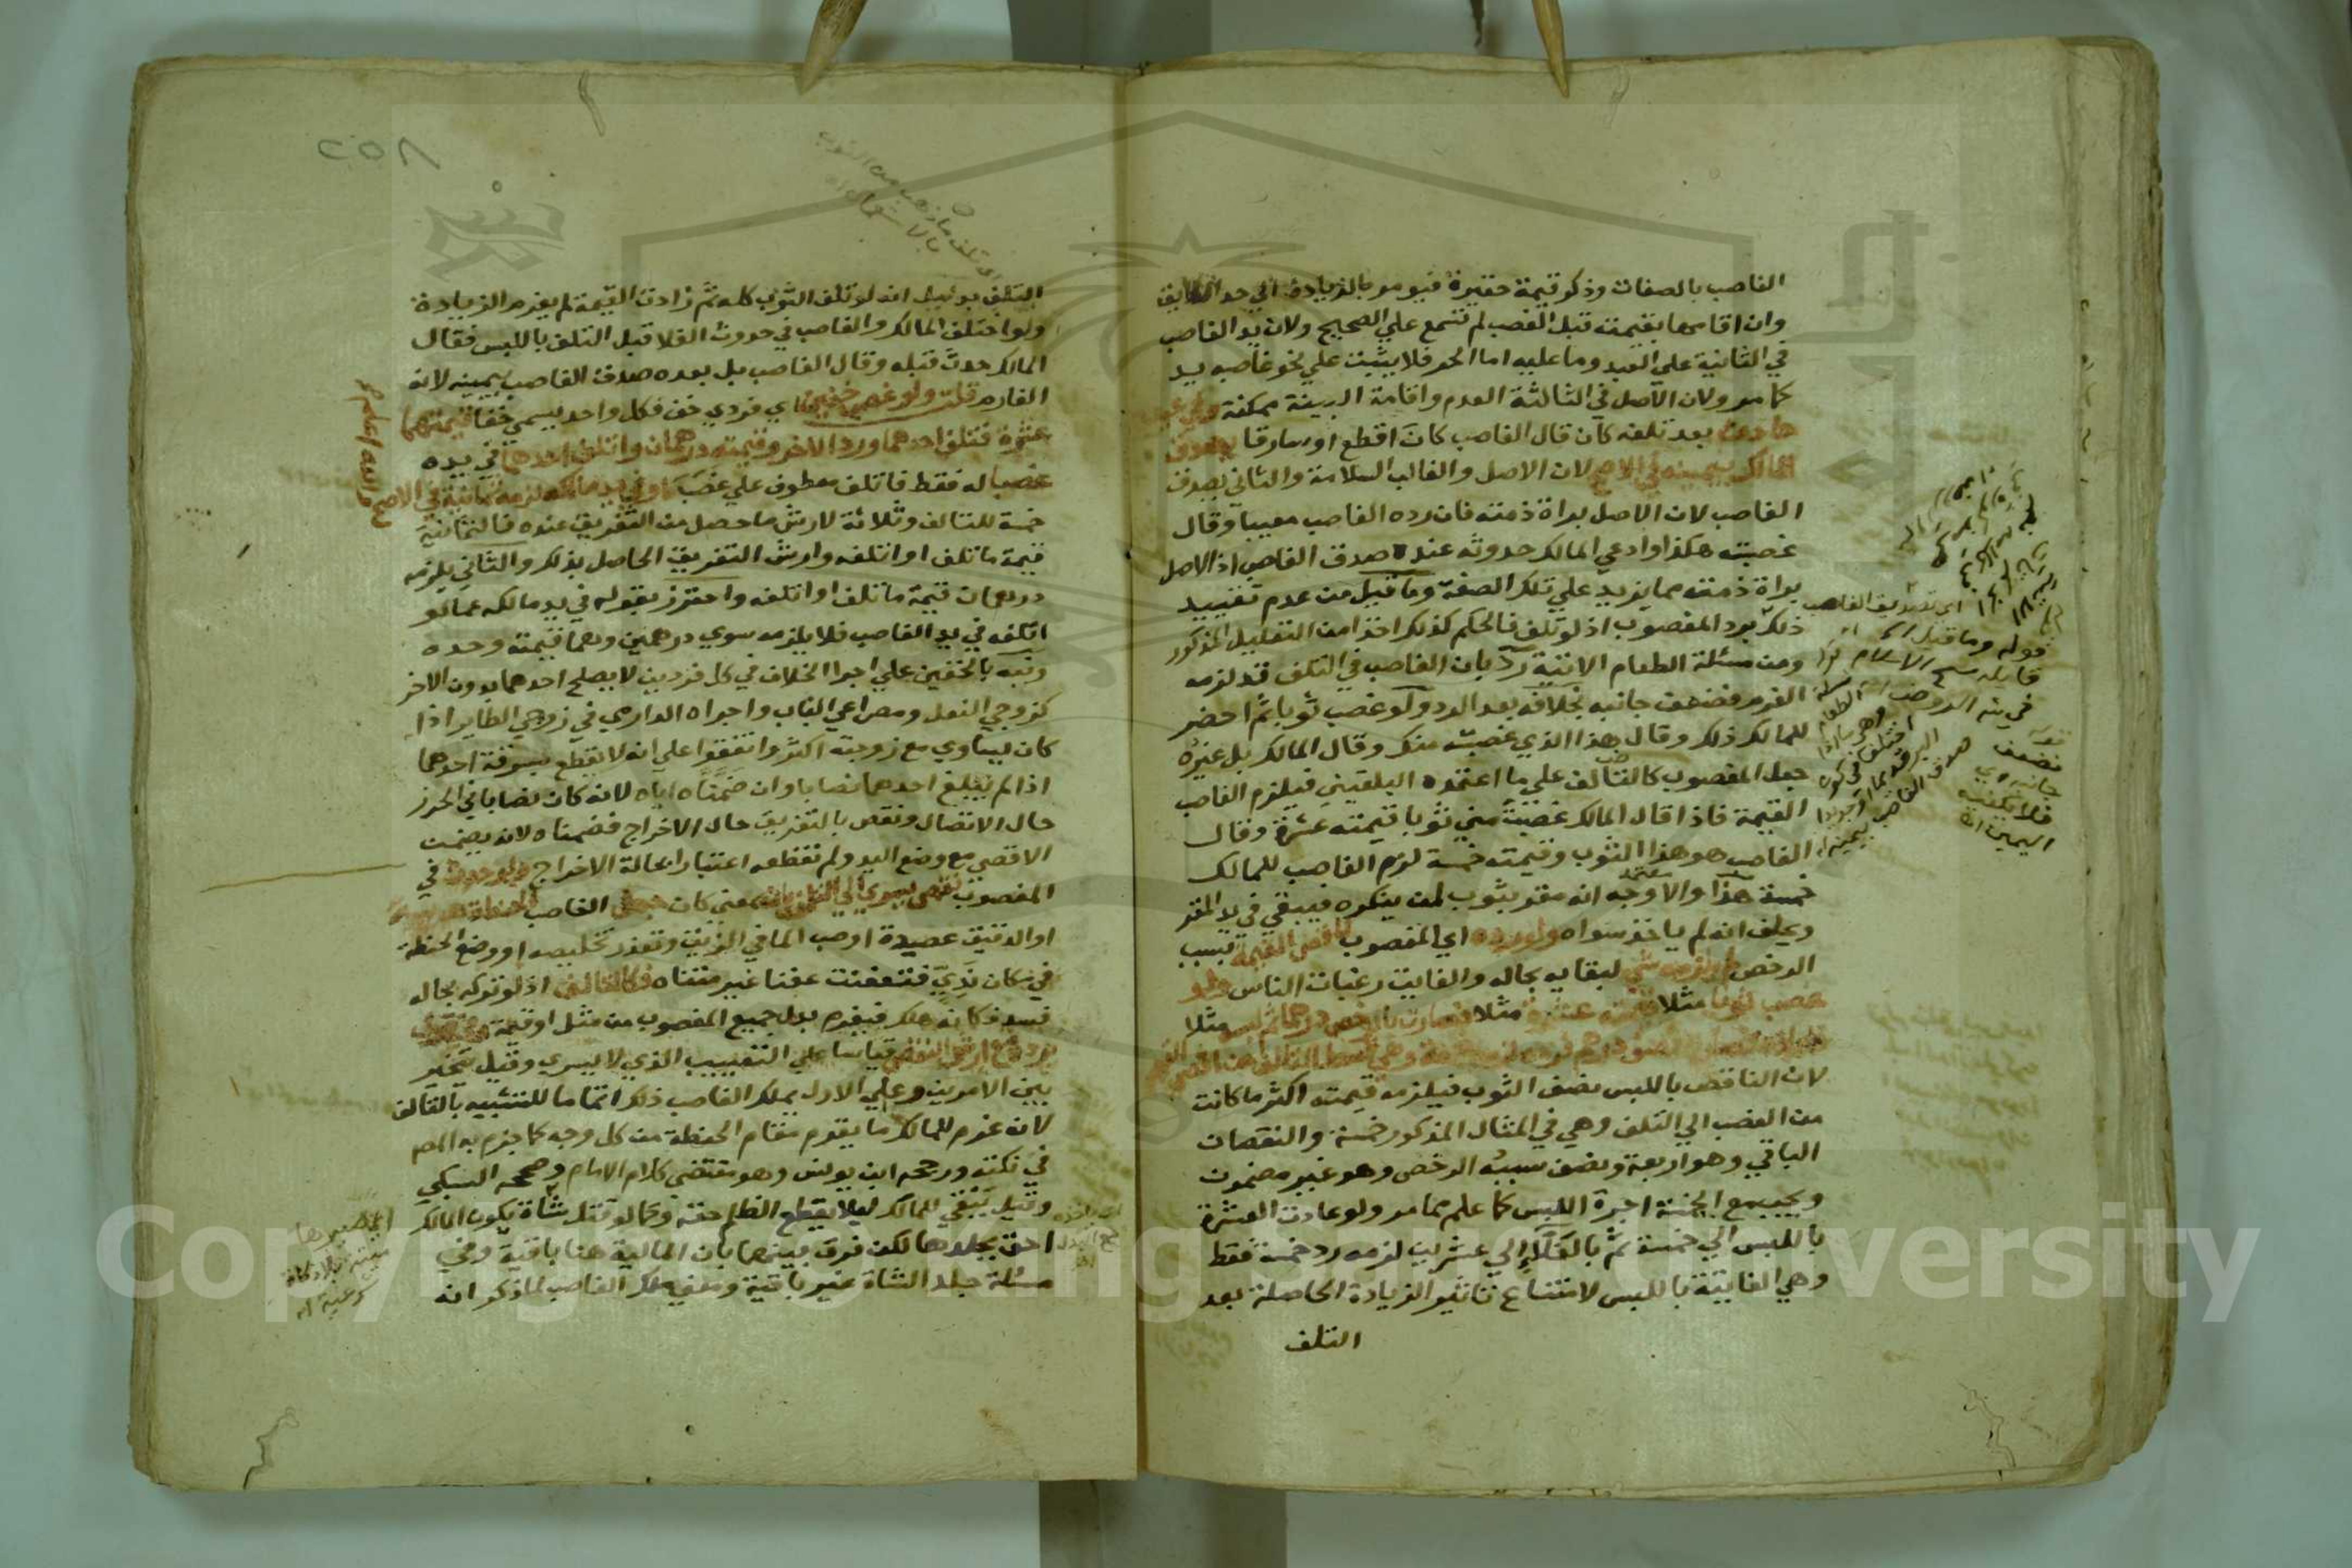 الغاصب بالصفات وذكر قيمة حقيرة فيومر بالزيادة الي حد اللايق
وان اقامها بقيمته قبل الغصب لم تسمع علي الصحيح ولان يد الغاصب
في الثانية علي العبد وما عليه اما الحر فلا يثبت علي نحو غاصبه يد
كما مر ولان الاصل في الثالثة العدم واقامة البينة ممكنة وفي عيب
حادث بعد تلفه كان قال الغاصب كان اقطع او سارقا يصدق
المالك بيمينه في الاصح لان الاصل والغالب السلامة والثاني يصدق
الغاصب لان الاصل براة ذمته فان رده الغاصب معيبا وقال
غصبته هكذا وادعي المالك حدوثه عنده صدق الغاصب اذ الاصل
براة ذمته مما يزيد علي تلك الصفة وما قيل من عدم تقييد
ذلك برد المغصوب اذ لو تلف فالحكم كذلك اخذا من التعليل المذكور
ومن مسئلة الطعام الاتية رد بان الغاصب في التلف قد لزمه
الغرم فضعف جانبه بخلافه بعد الرد ولو غصب ثوبا ثم احضر
للمالك ذلك وقال هذا الذي غصبته منك وقال المالك بل غيره
جعل المغصوب كالتالف علي ما اعتمده البلقيني فيلزم الغاصب
القيمة فاذا قال المالك غصبت مني ثوبا قيمته عشرة وقال
الغاصب هو هذا الثوب وقيمته خمسة لزم الغاصب للمالك
خمسة هذا والاوجه انه مقر بثوب لمن ينكره فيبقي في يد المقر
ويحلف انه لم ياخذ سواه ولو رده اي المغصوب ناقص القيمة بسبب
الرخص لم يلزمه شي لبقايه بحاله والفايت رغبات الناس ولو
غصب ثوبا مثلا قيمته عشرة مثلا فصارت بالرخص درهما ثم لبسه مثلا
لان الناقص باللبس نصف الثوب فيلزمه قيمته اكثر ما كانت
من الغصب الي التلف وهي في المثال المذكور خمسة والنقصان
الباقي وهو اربعة ونصف سببه الرخص وهو غير مضمون
ويجب مع الخمسة اجرة اللبس كما علم مما مر ولو عادت العشرة
باللبس الي خمسة ثم بالغلاء الي عشرين لزمه رد خمسة فقط
وهي الفايتة باللبس لامتناع تاثير الزيادة الحاصلة بعد
التلف
اي تصديق الغاصب
قوله وما قيل
قايله شيخ الاسلام
اليمين اه
٢٥٨
اي تلف ما ذهب من الثوب
بالاستعمال اه
التلف بدليل انه لو تلف الثوب كله ثم زادت القيمة لم يغرم الزيادة
ولو اختلف المالك والغاصب في حدوث الغلا قبل التلف باللبس فقال
المالك حدث قبله وقال الغاصب بل بعده صدق الغاصب بيمينه لانه
الغارم قلت ولو غصب خفين اي فردي خف فكل واحد يسمي خفا قيمتهما
عشرة فتلف احدهما ورد الاخر وقيمته درهمان او اتلف احدهما في يده
غصبا له فقط فاتلف معطوف علي غصب او في يد مالكه لزمه ثمانية في الاصح
والله اعلم
خمسة للتالف وثلاثة لارش ما حصل من التفريق عنده فالثمانية
قيمة ما تلف او اتلفه وارش التفريق الحاصل بذلك والثاني يلزمه
درهمان قيمة ما تلف او اتلفه واحترز بقوله في يد مالكه عما لو
اتلفه في يد الغاصب فلا يلزمه سوي درهمين وهما قيمته وحده
ونبه بالخفين علي اجرا الخلاف في كل فردين لا يصلح احدهما بدون الاخر
كزوجي النعل ومصراعي الباب واجراه الدارمي في زوجي الطاير اذا
كان يساوي مع زوجته اكثر واتفقوا علي انه لا يقطع بسرقة احدهما
اذا لم يبلغ احدهما نصابا وان ضمناه اياه لانه كان نصابا في الحرز
حال الاتصال ونقص بالتفريق حال الاخراج فضمناه لانه يضمن
الاقصي مع وضع اليد ولم نقطعه اعتبارا بحالة الاخراج ولو حدث في
المغصوب نقص يسري الي التلف بمعني كان جعل الغاصب الحنطة هريسة
او الدقيق عصيدة او صب الما في الزيت وتعذر تخليصه او وضع الحنطة
في مكان ندي فتعفنت عفنا غير متناه فكالتالف اذ لو تركه بحاله
فسد فكانه هلك فيغرم بدل جميع المغصوب من مثل او قيمة وفي قول
يرده مع ارش النقص قياسا علي التعييب الذي لا يسري وقيل يتخير
بين الامرين وعلي الاول يملك الغاصب ذلك اتماما للتشبيه بالتالف
لانه غرم للمالك ما يقوم مقام الحنطة من كل وجه كما جزم به المص
في نكته ورجحه ابن يونس وهو مقتضي كلام الامام وصححه السبكي
وقيل يبقي للمالك ليلا يقطع الظلم حقه وكما لو قتل شاة يكون المالك
احق بجلدها لكن فرق بينهما بان المالية هنا باقية وفي
مسئلة جلد الشاة غير باقية ومعني ملك الغاصب لما ذكر انه